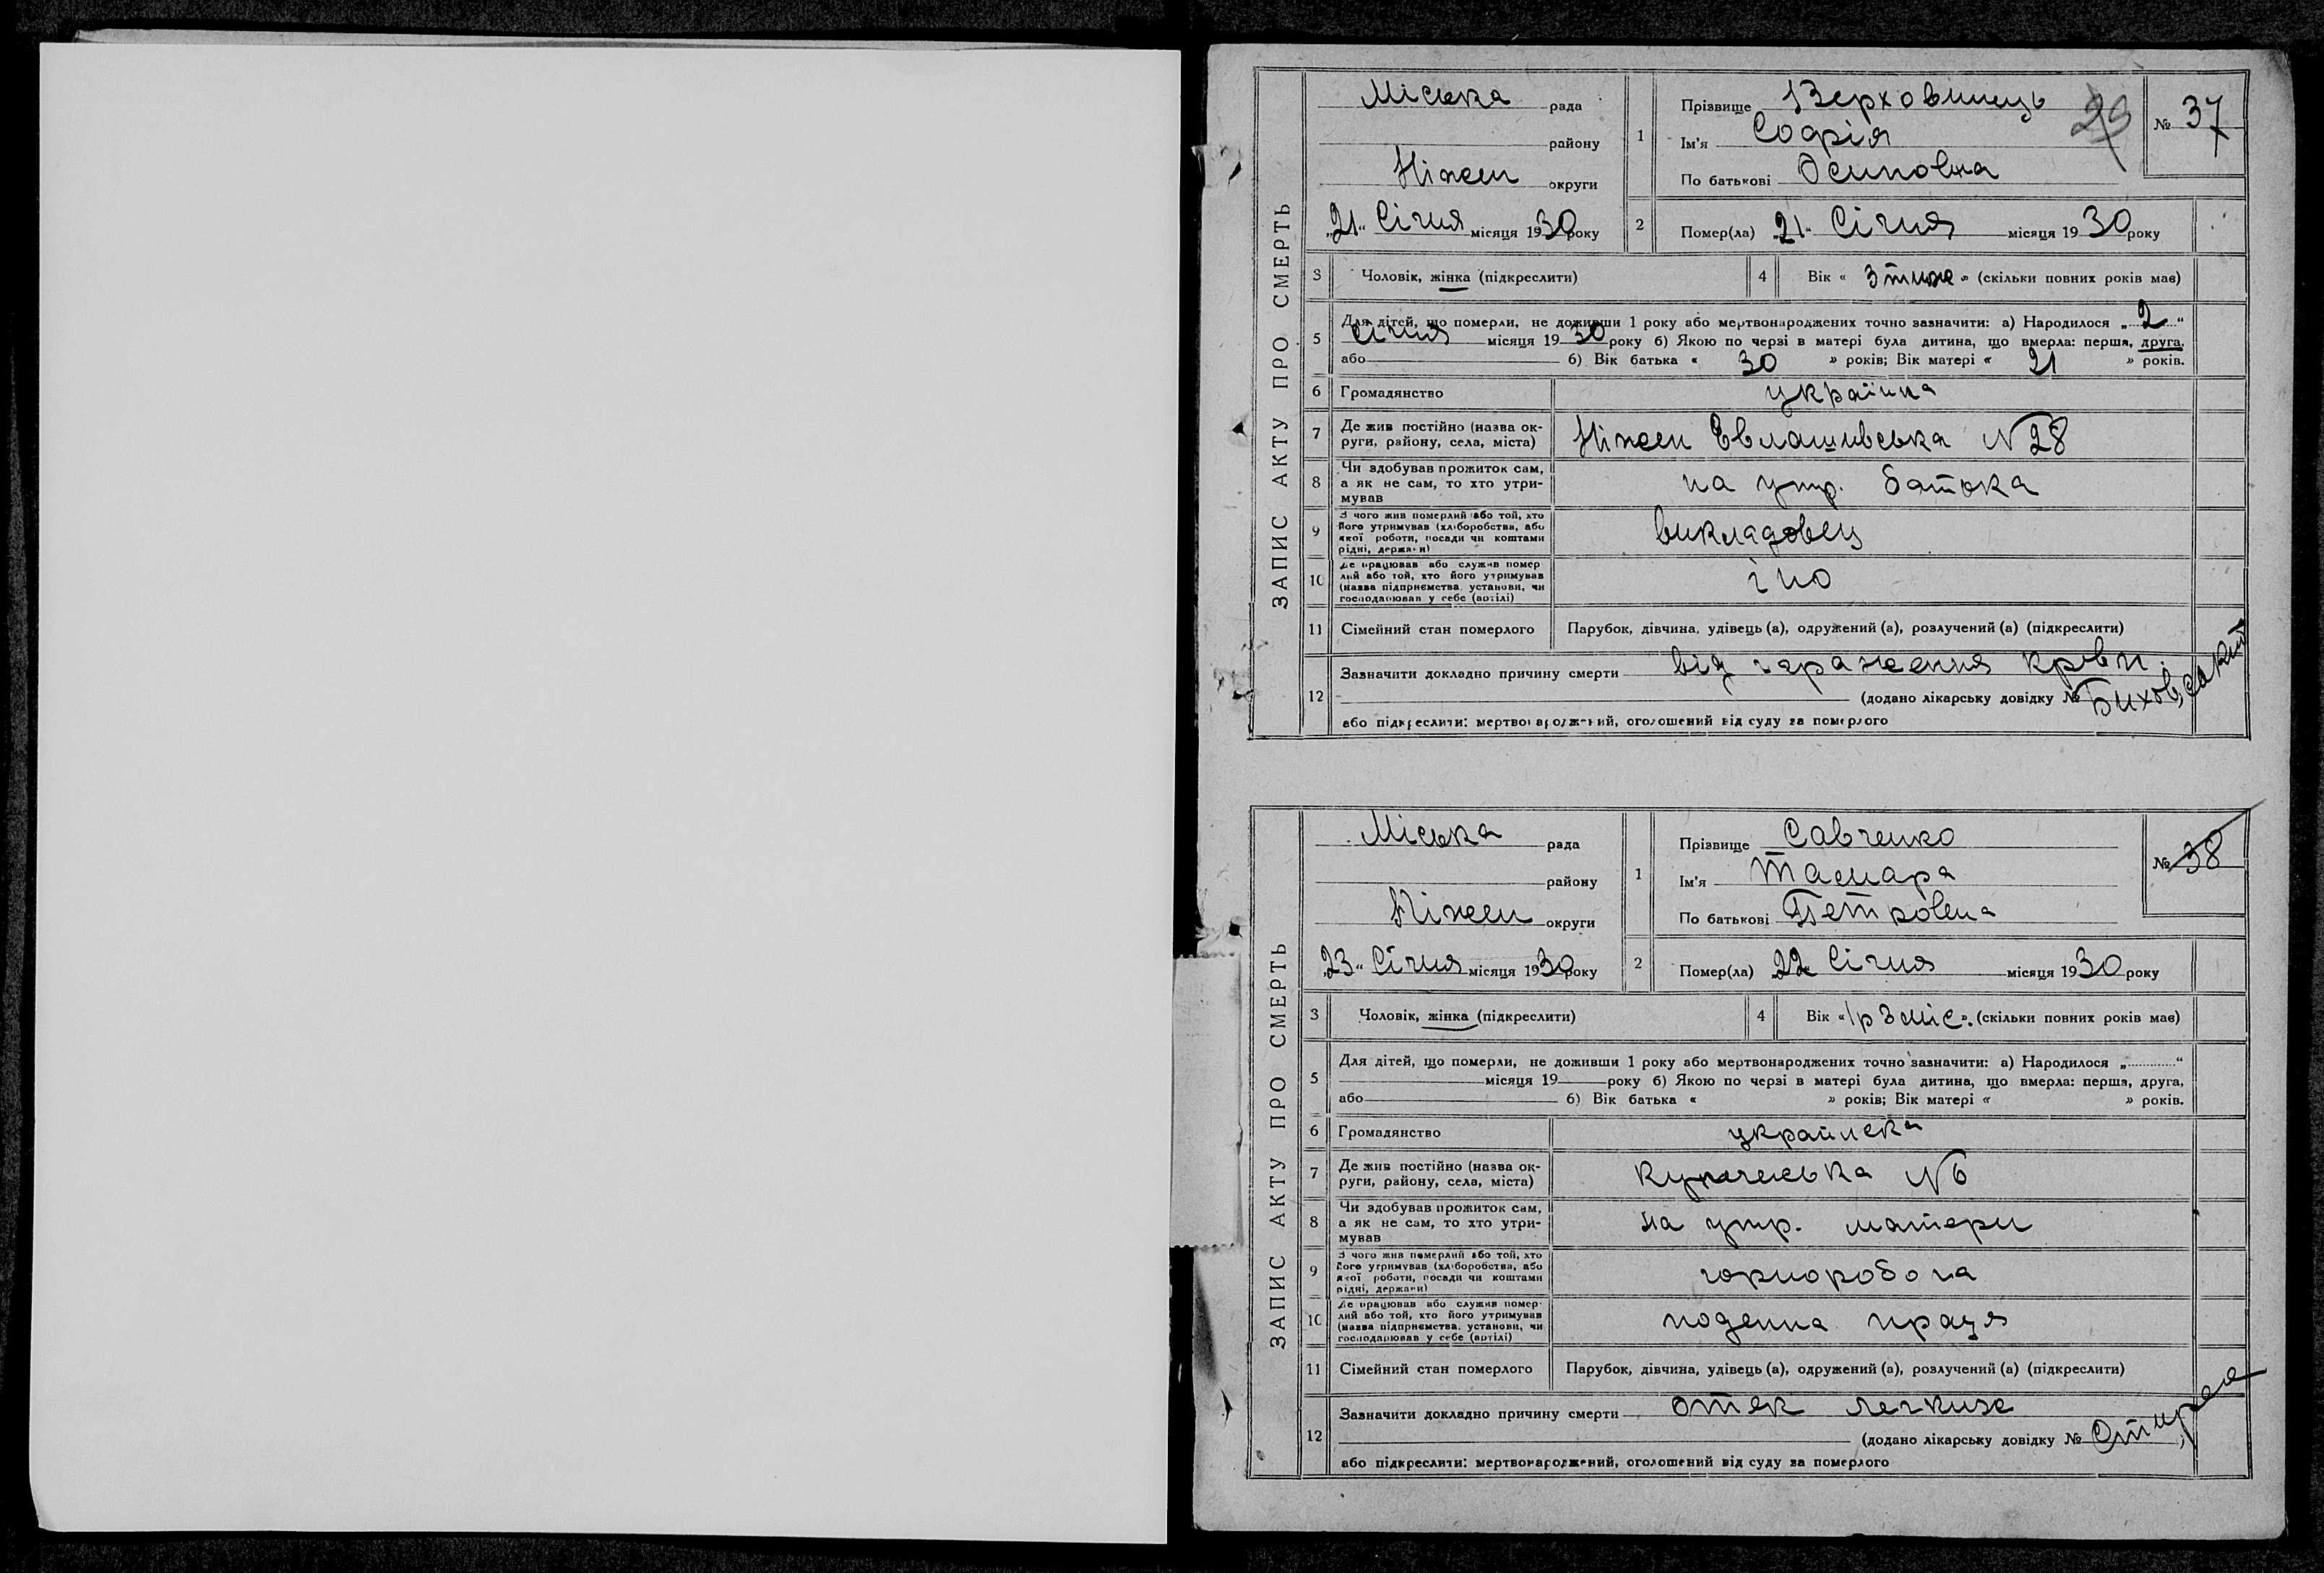 ЗАПИС АКТУ ПРО СМЕРТЬ
Міська рада
району
Ніжен округи
„21“ Січня місяця 1930 року
1
Прізвище Верховинець
Ім'я Софія
По батькові Осиповна
29
№ 37
2
Помер(ла) 21 Січня місяця 1930 року
3
Чоловік, жінка (підкреслити)
4
Вік « 3 тижн » (скільки повних років мав)
5
Для дітей, що померли, не доживши 1 року або мертвонароджених точно зазначити: а) Народилося „2“
Січня місяця 1930 року б) Якою по черзі в матері була дитина, що вмерла: перша, друга,
або б) Вік батька « 30 » років; Вік матері « 21 » років.
6
Громадянство
українка
7
Де жив постійно (назва ок-
руги, району, села, міста)
Ніжен Евлашивська N 28
8
Чи здобував прожиток сам,
а як не сам, то хто утри-
мував
на утр. батька
9
З чого жив померлий або той, хто
його утримував (хліборобства, або
якої роботи, посади чи коштами
рідні, держави)
викладовец
10
Де працював або служив помер
лий або той, хто його утримував
(назва підприємства, установи, чи
господарював у себе (артілі)
іно
11
Сімейний стан померлого
Парубок, дівчина, удівець (а), одружений (а), розлучений (а) (підкреслити)
12
Зазначити докладно причину смерти від зараження крови.
(додано лікарську довідку №
або підкреслити: мертвонароджений, оголошений від суду за померлого
ЗАПИС АКТУ ПРО СМЕРТЬ
Міська рада
району
Ніжен округи
„23“ Січня місяця 1930 року
1
Прізвище Савченко
Ім'я Тамара
По батькові Петровна
№ 38
2
Помер(ла) 22 Січня місяця 1930 року
3
Чоловік, жінка (підкреслити)
4
Вік « 1р 3 міс ». (скільки повних років мав)
5
Для дітей, що померли, не доживши 1 року або мертвонароджених точно зазначити: а) Народилося „ “
місяця 19 року б) Якою по черзі в матері була дитина, що вмерла: перша, друга,
або б) Вік батька « » років; Вік матері « » років.
6
Громадянство
українска
7
Де жив постійно (назва ок-
руги, району, села, міста)
N 6
8
Чи здобував прожиток сам,
а як не сам, то хто утри-
мував
на утр. матери
9
З чого жив померлий або той, хто
його утримував (хліборобства, або
якої роботи, посади чи коштами
рідні, держави)
чорноробоча
10
Де працював або служив помер-
лий або той, хто його утримував
(назва підприємства, установи, чи
господарював у себе (артілі)
поденна праця
11
Сімейний стан померлого
Парубок, дівчина, удівець (а), одружений (а), розлучений (а) (підкреслити)
12
Зазначити докладно причину смерти отек легких
(додано лікарську довідку №
або підкреслити: мертвонароджений, оголошений від суду за померлого